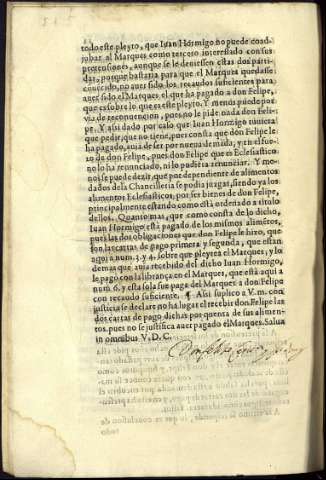 todo este pleyto, que Iuan Hormigo no puede coad
jubar al Marques como tercero interessado con sus
pretensiones, aunque se le deuiessen estas dos parti-
das, porque bastaria para que el Marques quedasse
conuencido, no auer sido los recaudos suficientes para
auer sido el Marques el que ha pagado a don Felipe,
que es sobre lo que es este pleyto. Y menos puede por
via de reconuencion, pues no le pide nada don Feli-
pe. Y assi dado por caso que Iuan Hormigo tuuiera
que pedir, que no tiene, pues consta que don Felipe le
ha pagado, auia de ser por nueua demãda, y en el fue-
ro de don Felipe, pues don Felipe que es Eclesiastico
no lo ha renunciado, ni lo podria renunciar. Y me-
nos se puede dezir, que por dependiente de alimentos
dados de la Chancilleria se podia juzgar, siendo ya los
alimentos Eclesiasticos, por ser bienes de don Felipe,
principalmente estando como està, ordenado a titulo
dellos. Quanto mas, que como consta de lo dicho,
Iuan Hormigo està pagado de los mismos alimẽtos,
pues las dos obligaciones que don Felipe le hizo, que
son las cartas de pago primera y segunda, que estan
aqui a num. 3. y 4. sobre que pleytea el Marques, y lo
demas que auia recebido del dicho Iuan Hormigo,
le pagò con la librança en el Marques, que està aqui a
num. 6. y esta sola fue paga del Marques a don Felipe
con recaudo suficiente. ¶ Assi suplico a V. m. con
justicia se declare no ha lugar el recebir don Felipe las
dos cartas de pago dichas por quenta de sus alimen-
tos, pues no se justifica auer pagado el Marques. Salua
in omnibus V. D. C.